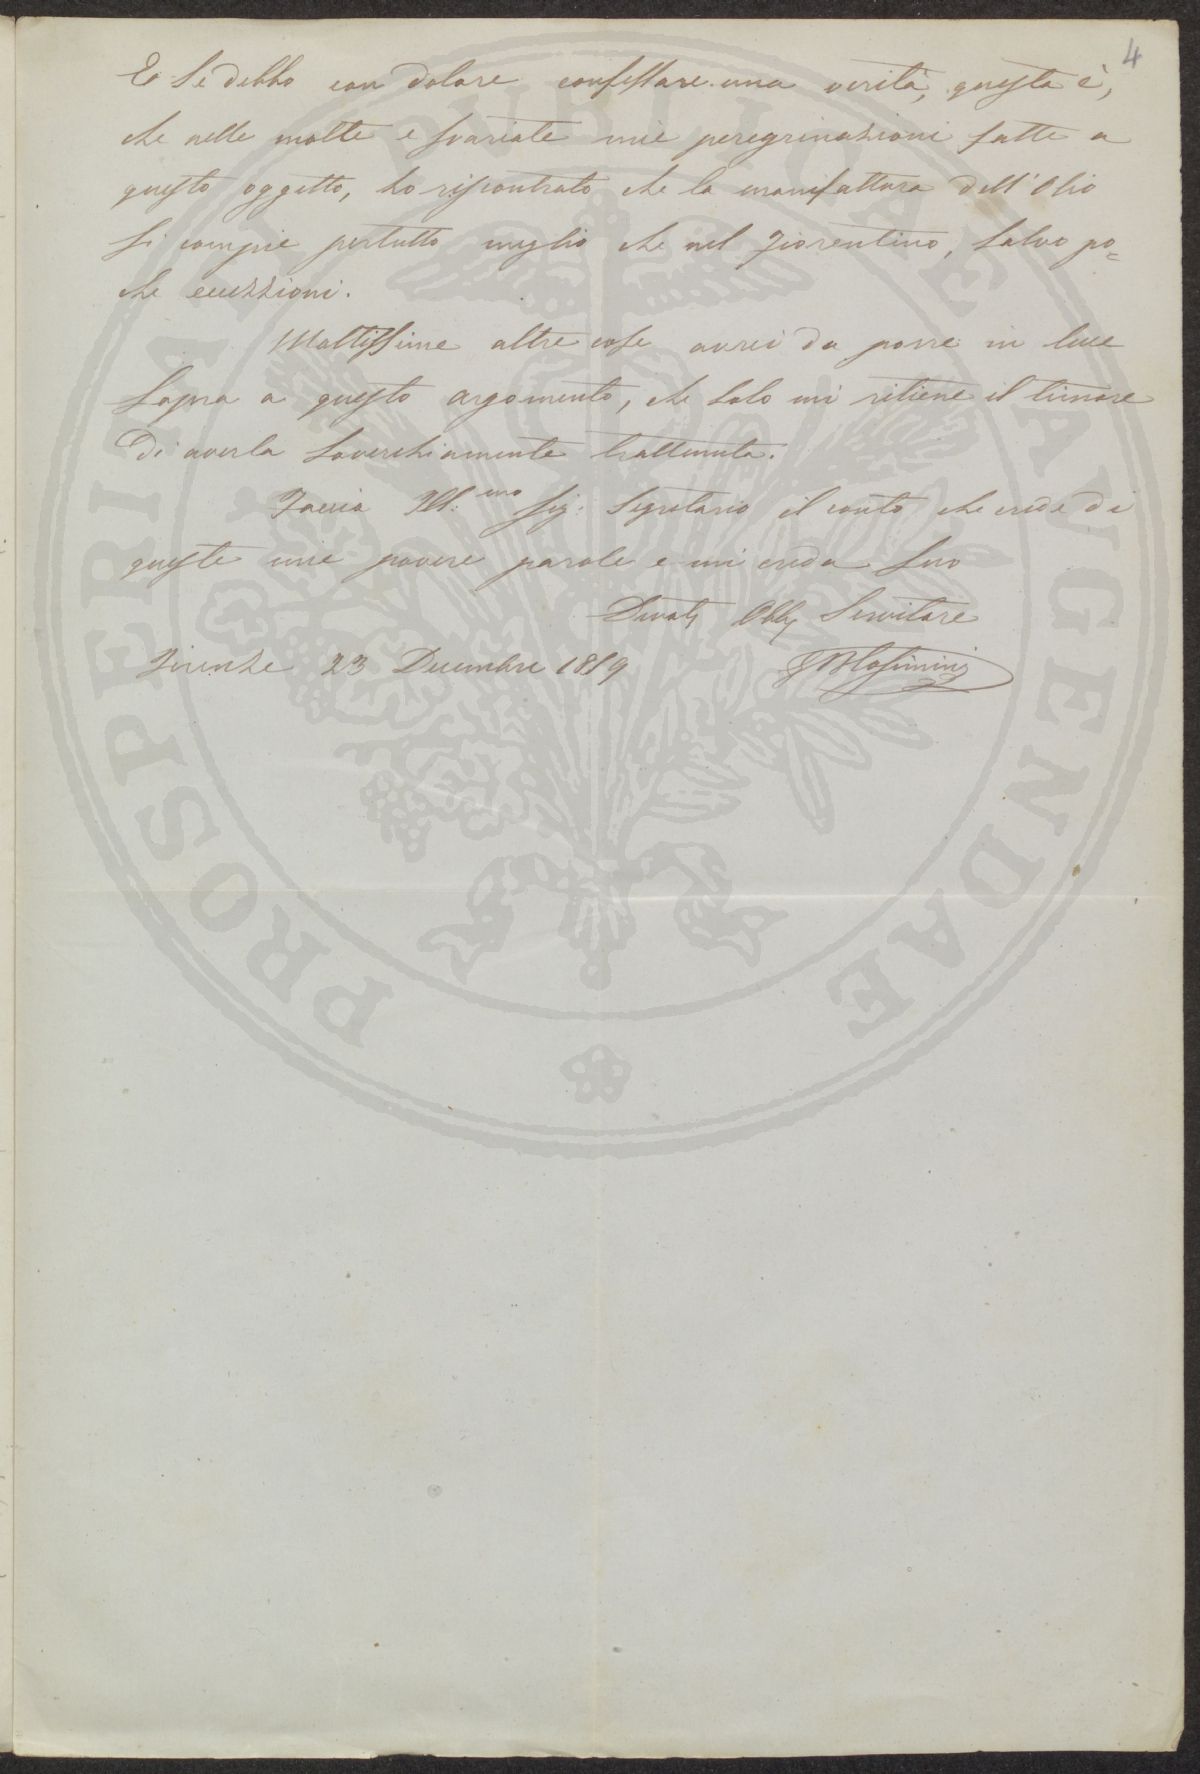 4
Eo se debbo con dolore confessare una verità, questa è,
che nelle molte e svariate mie peregrinazioni fatte a
questo oggetto, ho riscontrato che la manifattura dell'Olio
si compie pertutto meglio che nel Fiorentino, salvo po=
che eccezzioni.
Moltissime altre cose avrei da porre in luce
sopra a questo argomento, che solo mi ritiene il timore
di averla soverchiamente trattenuta.
Faccia Ill:mo Sig: Segretario il conto che crede di
queste mie povere parole e mi creda suo
Servitore
Firenze 23 Decembre 1859
PROSPERITATI PVBLICAE AVGENDAE